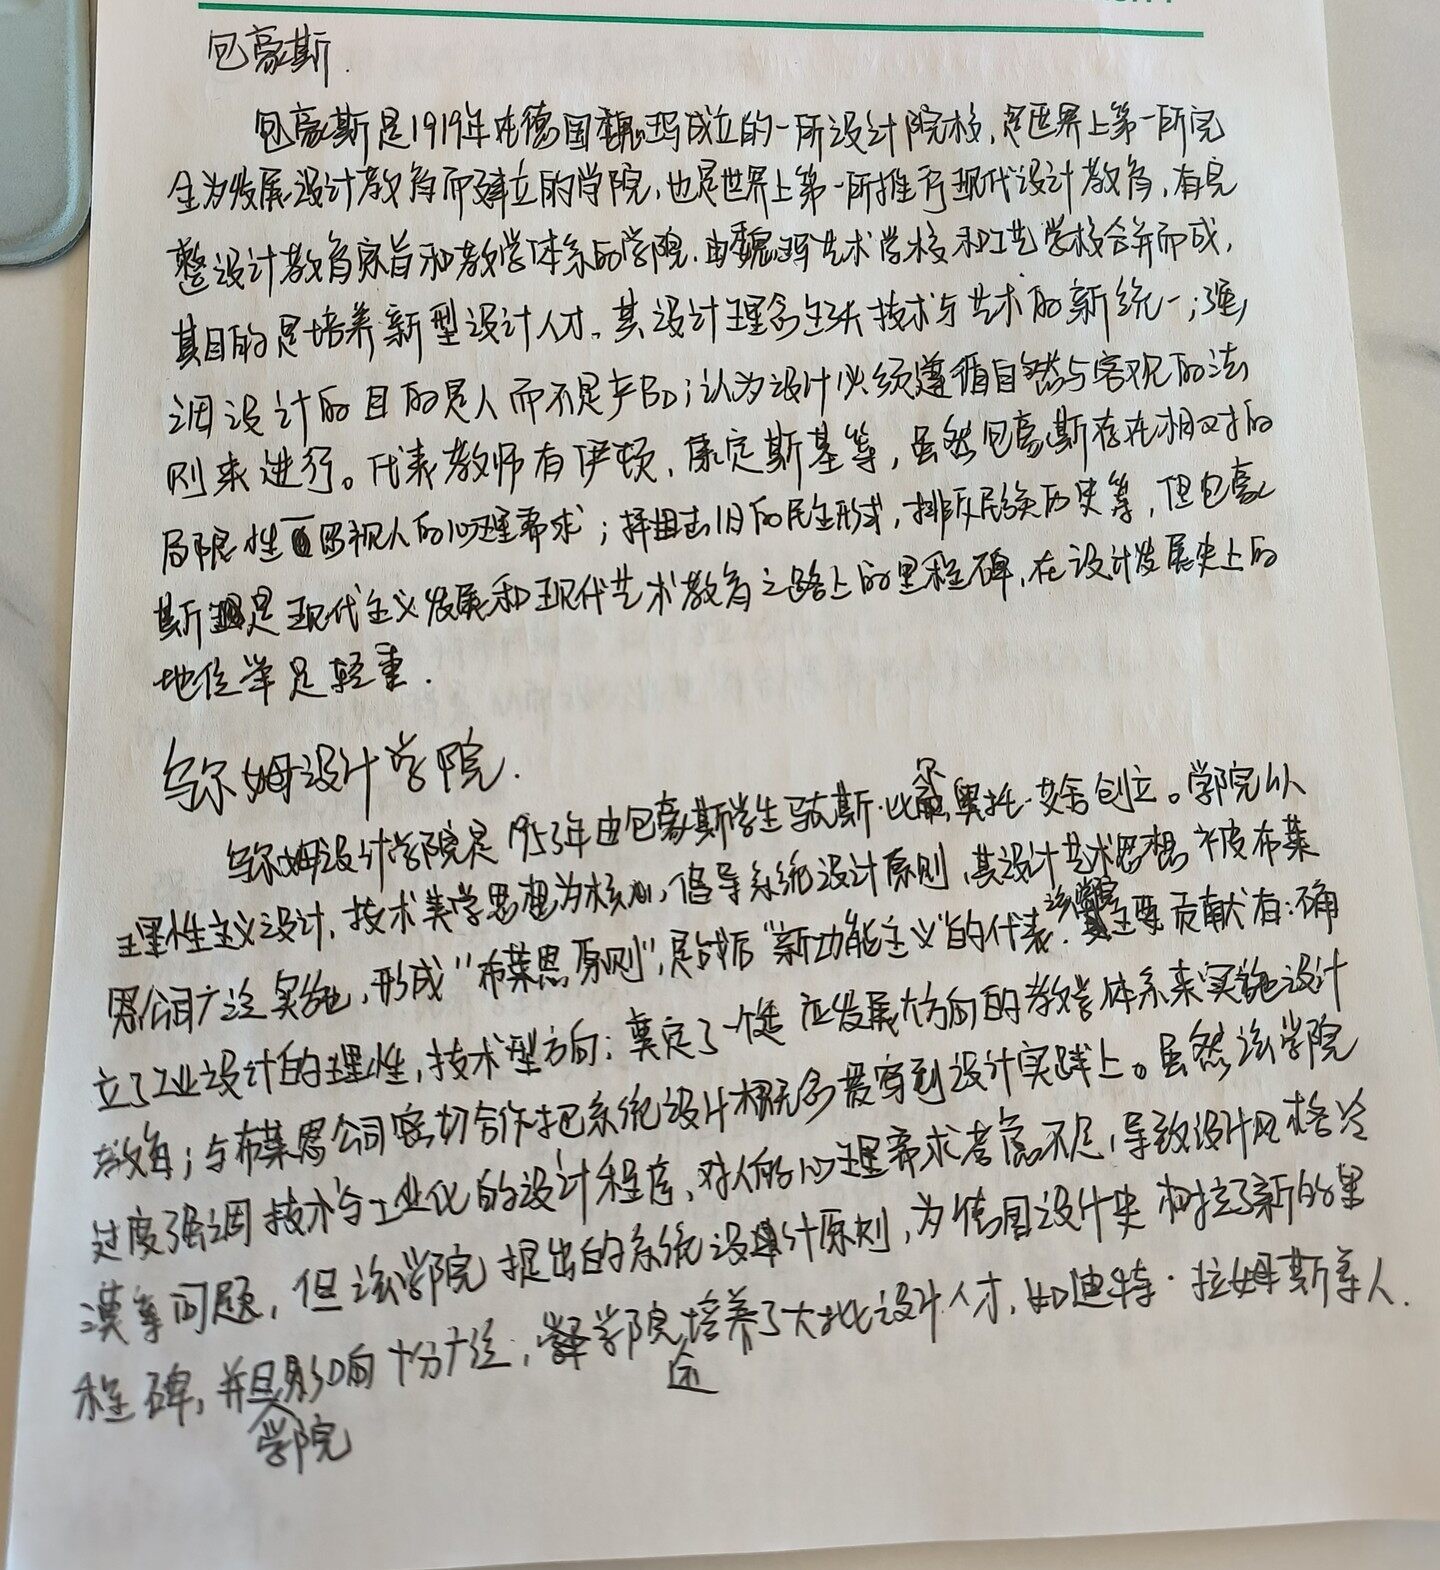 包豪斯.
包豪斯是1919年在德国魏玛成立的一所设计院校,是世界上第一所完
全为发展设计教育而建立的学院,也是世界上第一所推行现代设计教育,有完
整设计教育宗旨和教学体系的学院.由魏玛艺术学校和工艺学校合并而成,
其目的是培养新型设计人才。其设计理念包括技术与艺术的新统一;强
调设计的目的是人而不是产品;认为设计必须遵循自然与客观的法
则来进行。代表教师有伊顿,康定斯基等,虽然包豪斯存在相对的
局限性忽视人的心理需求;抨击旧的民主形式,排斥民族历史等,但包豪
斯是现代主义发展和现代艺术教育之路上的里程碑,在设计发展史上的
地位举足轻重.
乌尔姆设计学院.
乌尔姆设计学院是1953年由包豪斯学生马克斯·比尔,奥托·艾舍创立。学院以
理性主义设计,技术美学思想为核心,倡导系统设计原则,其设计艺术思想被布莱
恩公司广泛实施,形成"布莱恩原则",是战后"新功能主义"的代表.该学院主要贡献有:确
立了工业设计的理性,技术型方向;奠定了一个适应发展大方向的教学体系来实施设计
教育;与布莱恩公司密切合作把系统设计概念贯穿到设计实践上。虽然该学院
过度强调技术与工业化的设计程序,对人的心理需求考虑不足,导致设计风格冷
漠等问题,但该学院提出的系统设计原则,为德国设计史树立了新的里
程碑,并且学院影响十分广泛;学院还培养了大批设计人才,如迪特·拉姆斯等人.